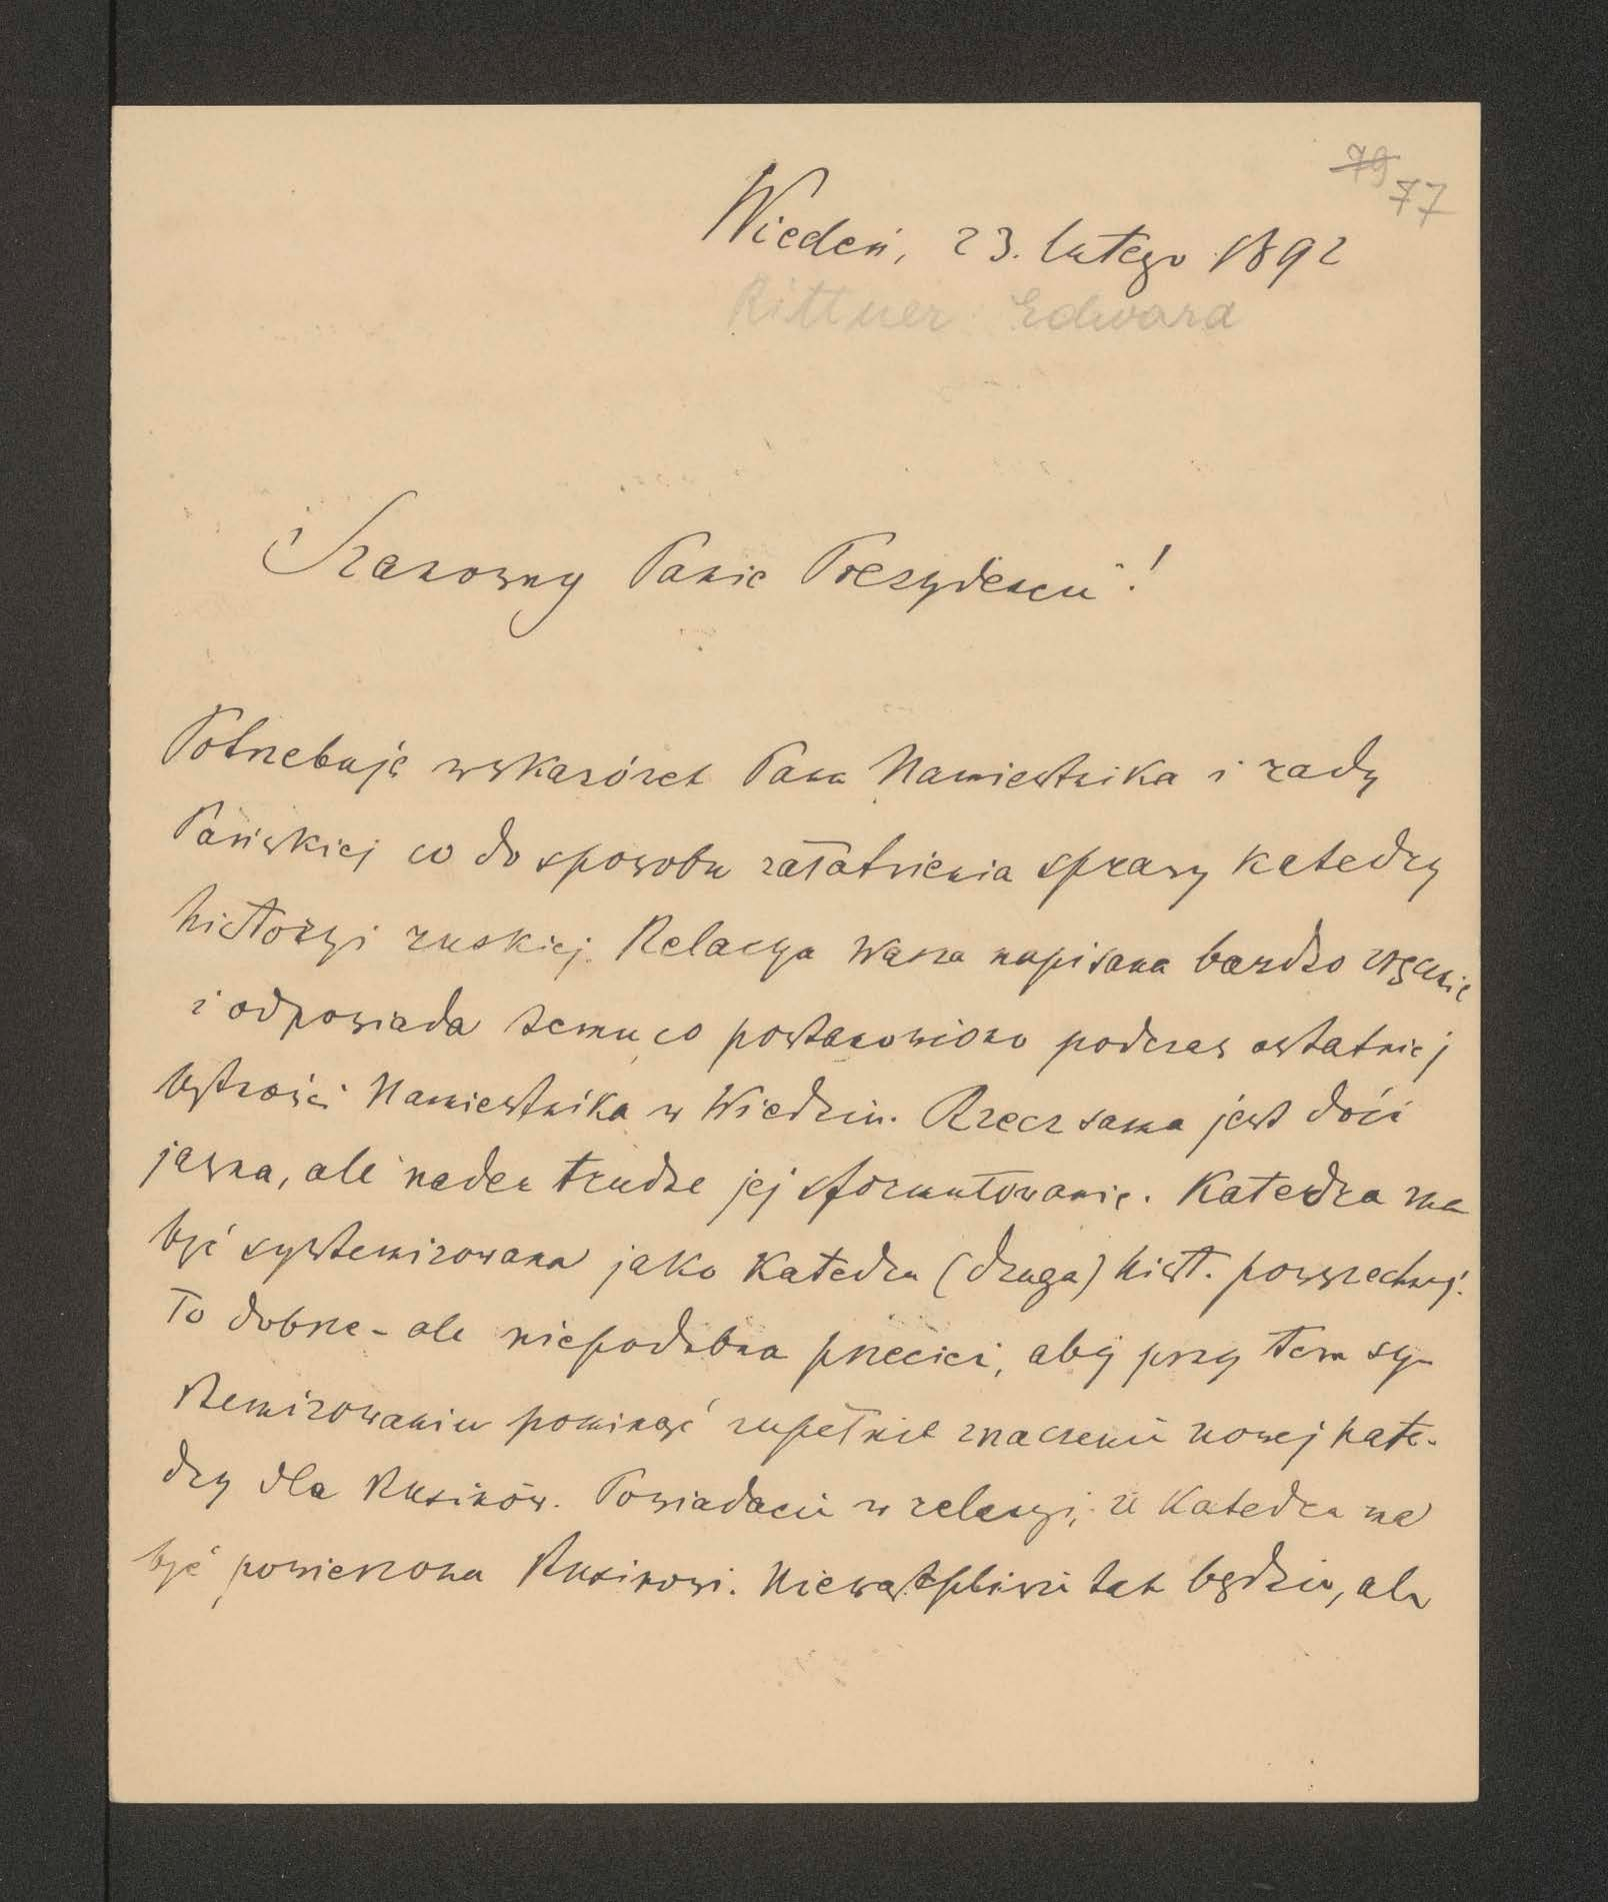 79 77
Wiedeń, 23. lutego 1892
Rittner Edward
Szanowny Panie Prezydencie!
Potrzebuję wskazówek Pana Namiestnika i rady
Pańskiej co do sposobu załatwienia sprawy katedry
historyi ruskiej. Relacya Wasza napisana bardzo zręcznie
i odpowiada temu, co postanowiono podczas ostatniej
bytności Namiestnika w Wiedniu. Rzecz sama jest dość
jasna, ale nader trudne jej sformułowanie. Katedra ma
być systemizowana jako Katedra (druga) hist. powszechnej.
To dobrze - ale niepodobna przecież, aby przy tem sy-
stemizowaniu pominąć zupełnie znaczenie nowej kate-
dry dla Rusinów. Powiadacie w relacyi, że Katedra ma
być powierzona Rusinowi. Niewątpliwie tak będzie, ale